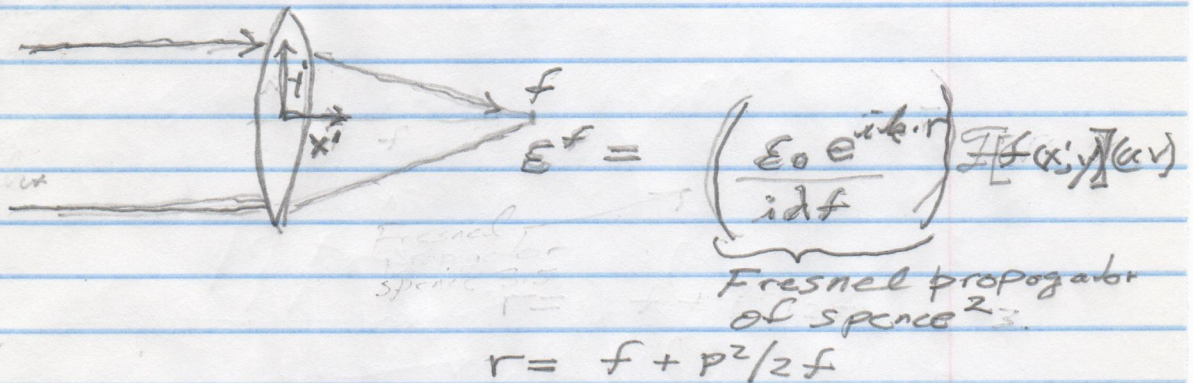 f
x'
ℰᶠ = (ℰ₀ e^{ik·r} / iλf) ℱ[f(x',y')](u,v)
Fresnel propogator
of spence²
r = f + ρ²/2f